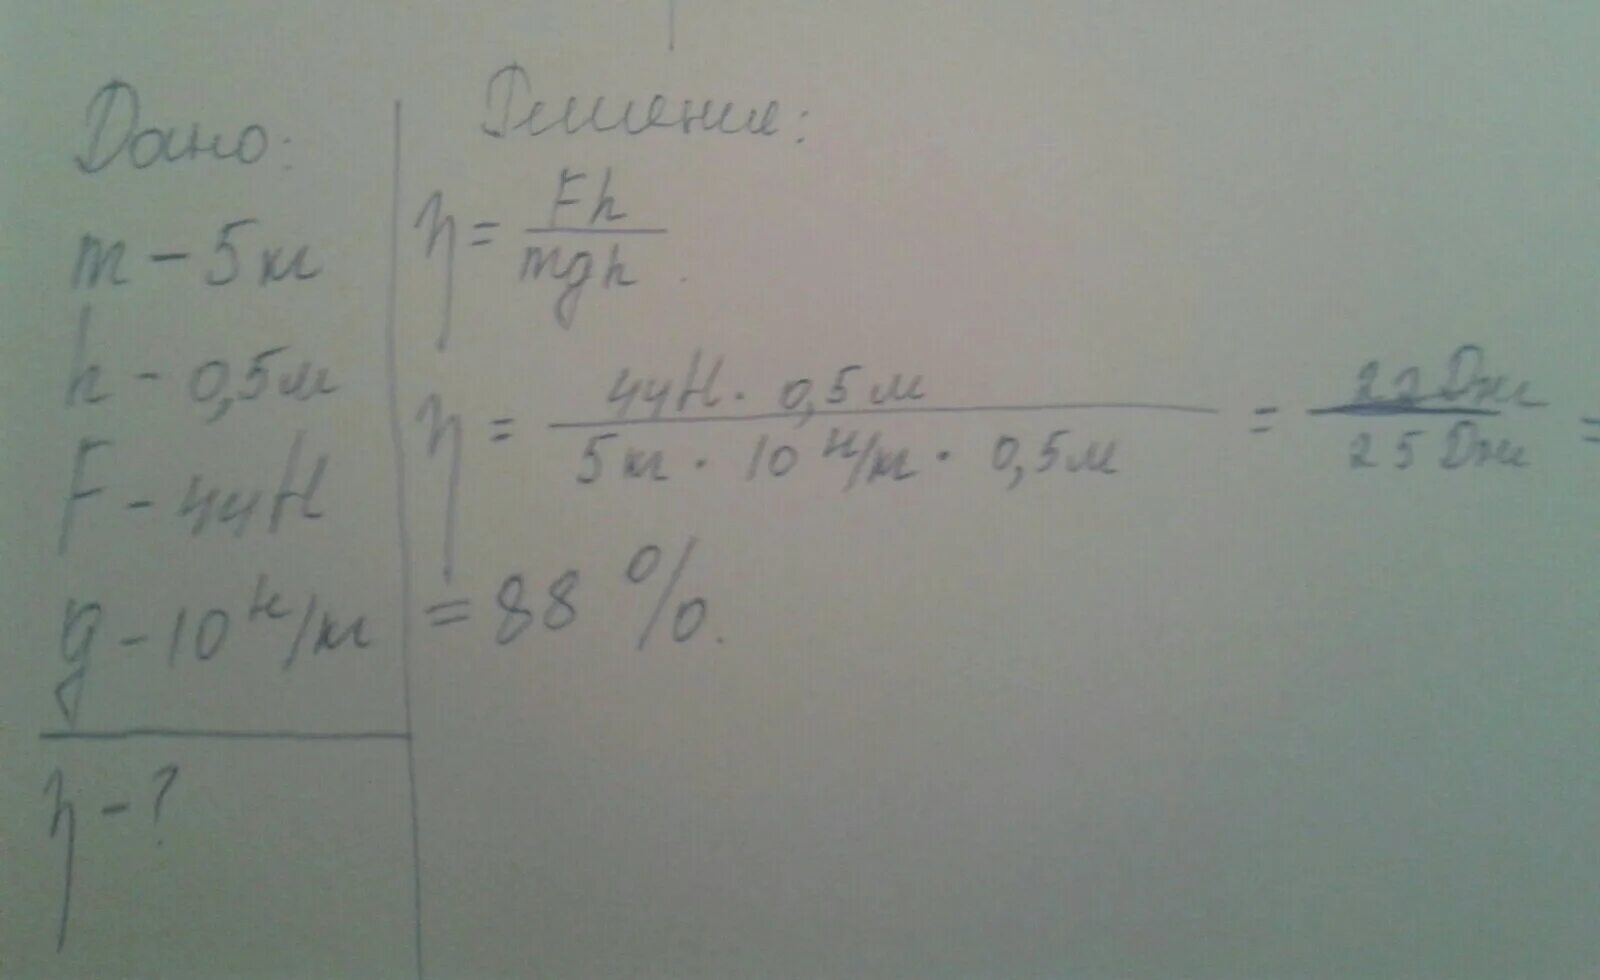 Дано:
m - 5 кг
h - 0,5 м
F - 44 Н
g - 10 Н/кг
η - ?
Решение:
η = Fh / mgh
η = 44 Н · 0,5 м / 5 кг · 10 Н/кг · 0,5 м = 22 Дж / 25 Дж =
= 88 %.